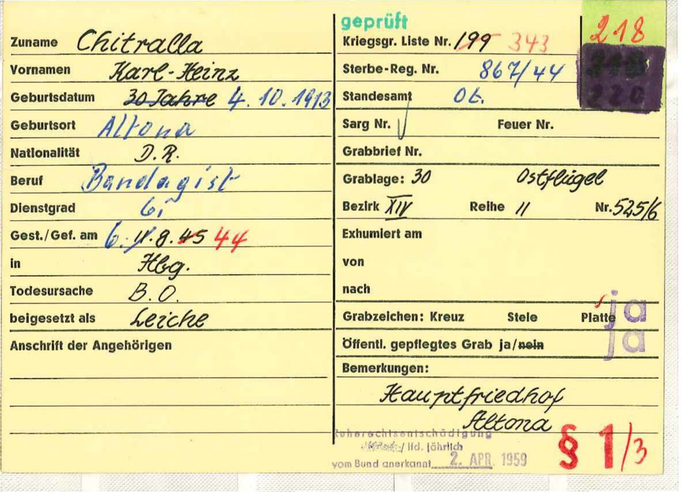 geprüft
218
Zuname Chitralla
Kriegsgr. Liste Nr. 199 343
Vornamen Karl-Heinz
Sterbe-Reg. Nr. 867/44
Geburtsdatum 30 Jahre 4.10.1913
Standesamt Ot.
Geburtsort Altona
Sarg Nr. Feuer Nr.
Nationalität D.R.
Grabbrief Nr.
Beruf Bandagist
Grablage: 30 Ostflügel
Dienstgrad
Bezirk XIV Reihe 11 Nr. 525/6
Gest./Gef. am 6. 11.8.45 44
Exhumiert am
in Hbg.
von
Todesursache B.O.
nach
beigesetzt als Leiche
Grabzeichen: Kreuz Stele Platte ja
Anschrift der Angehörigen
Öffentl. gepflegtes Grab ja/nein ja
Bemerkungen:
Hauptfriedhof
Altona
Ruherechtsentschädigung
/ lfd. jährlich
vom Bund anerkannt 2. APR. 1959
§ 1/3